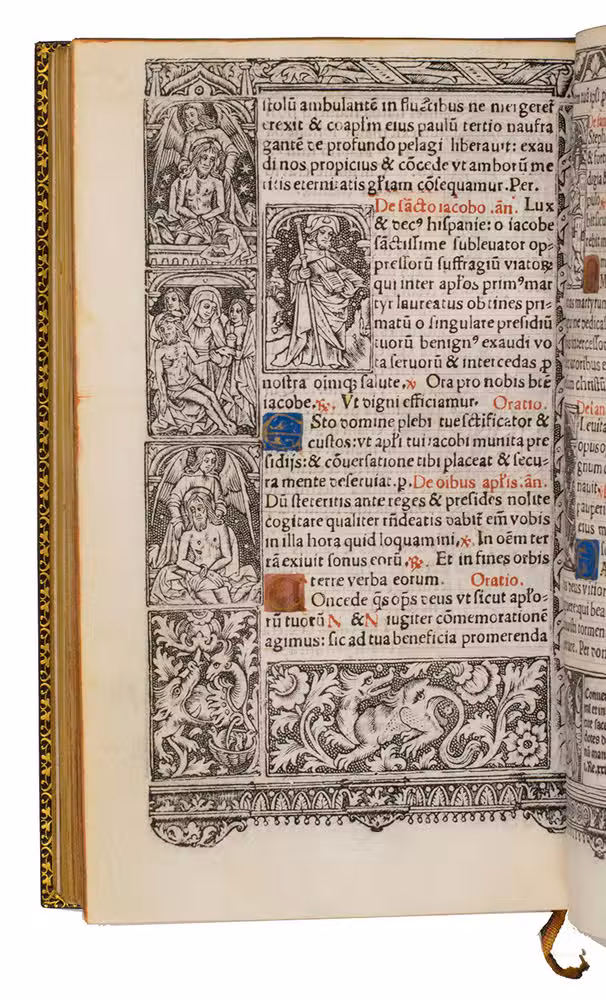 stolū ambulantē in fluctibus ne mergeret
erexit & coapl̄m eius paulū tertio naufra
gantē de profundo pelagi liberauit: exau
di nos propicius & cōcede vt amborū me
ritis eternitatis gl̄iam cōsequamur. Per.
De sācto iacobo .ān. Lux
& decꝰ hispanie: o iacobe
sāctissime subleuator op-
pressorū suffragiū viatoꝝ
qui inter apl̄os primꝰmar
tyr laureatus obtines pri-
matū o singulare presidiū
tuorū benignꝰ exaudi vo
ta seruorū & intercedas ꝓ
nostra oīmqꝫ salute. ℣. Ora pro nobis btē
iacobe. ℟. Vt digni efficiamur. Oratio.
ESto domine plebi tue sctificator &
custos: vt apl̄i tui iacobi munita pre
sidijs: & cōuersatione tibi placeat & secu-
ra mente deseruiat. p. De oībus apl̄is. ān.
Dū steteritis ante reges & presides nolite
cogitare qualiter rn̄deatis dabit̄ em̄ vobis
in illa hora quid loquamini. ℣. In oēm ter
rā exiuit sonus eorū. ℟. Et in fines orbis
terre verba eorum. Oratio.
COncede qs̄ ops̄ deus vt sicut apl̄o-
rū tuorū N & N iugiter cōmemorationē
agimus: sic ad tua beneficia promerenda